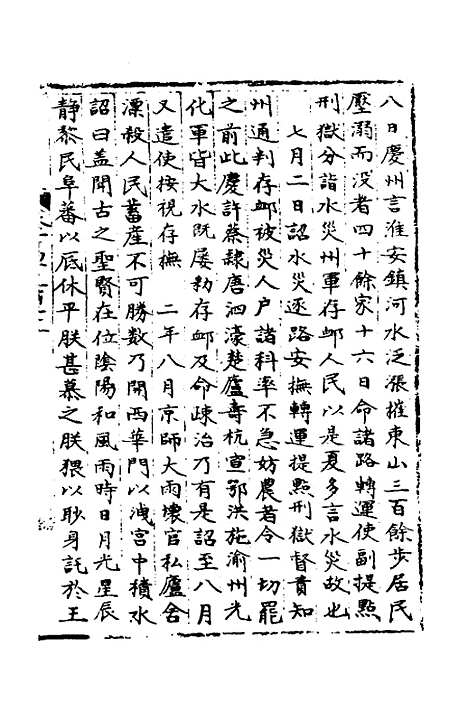 八日慶州言淮安鎮河水泛漲摧東山三百餘步居民
壓溺而没者四十餘家十六日命諸路轉運使副提點
刑獄分詣水災州軍存邺人民以是夏多言水災故也
七月二日詔水災逐路安撫轉運提點刑獄督責知
州通判存邺被災人户諸科率不急妨農者令一切罷
之前此慶許蔡隸唐泗濠楚廬壽杭宣鄂洪施渝州光
化軍皆大水既屢勑存邺及命疎治乃有是詔至八月
又遣使按視存撫　二年八月京師大雨壞官私廬舍
漂殺人民蓄産不可勝數乃開西華門以洩宮中積水
詔曰蓋聞古之聖賢在位陰陽和風雨時日月光星辰
靜黎民阜蕃以底休平朕甚慕之朕猥以眇身託於王